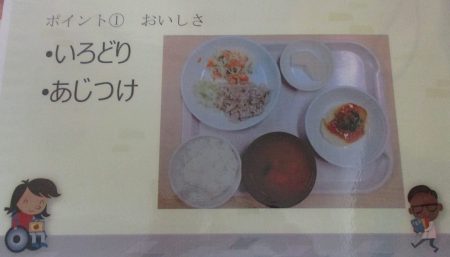 ポイント① おいしさ
・いろどり
・あじつけ